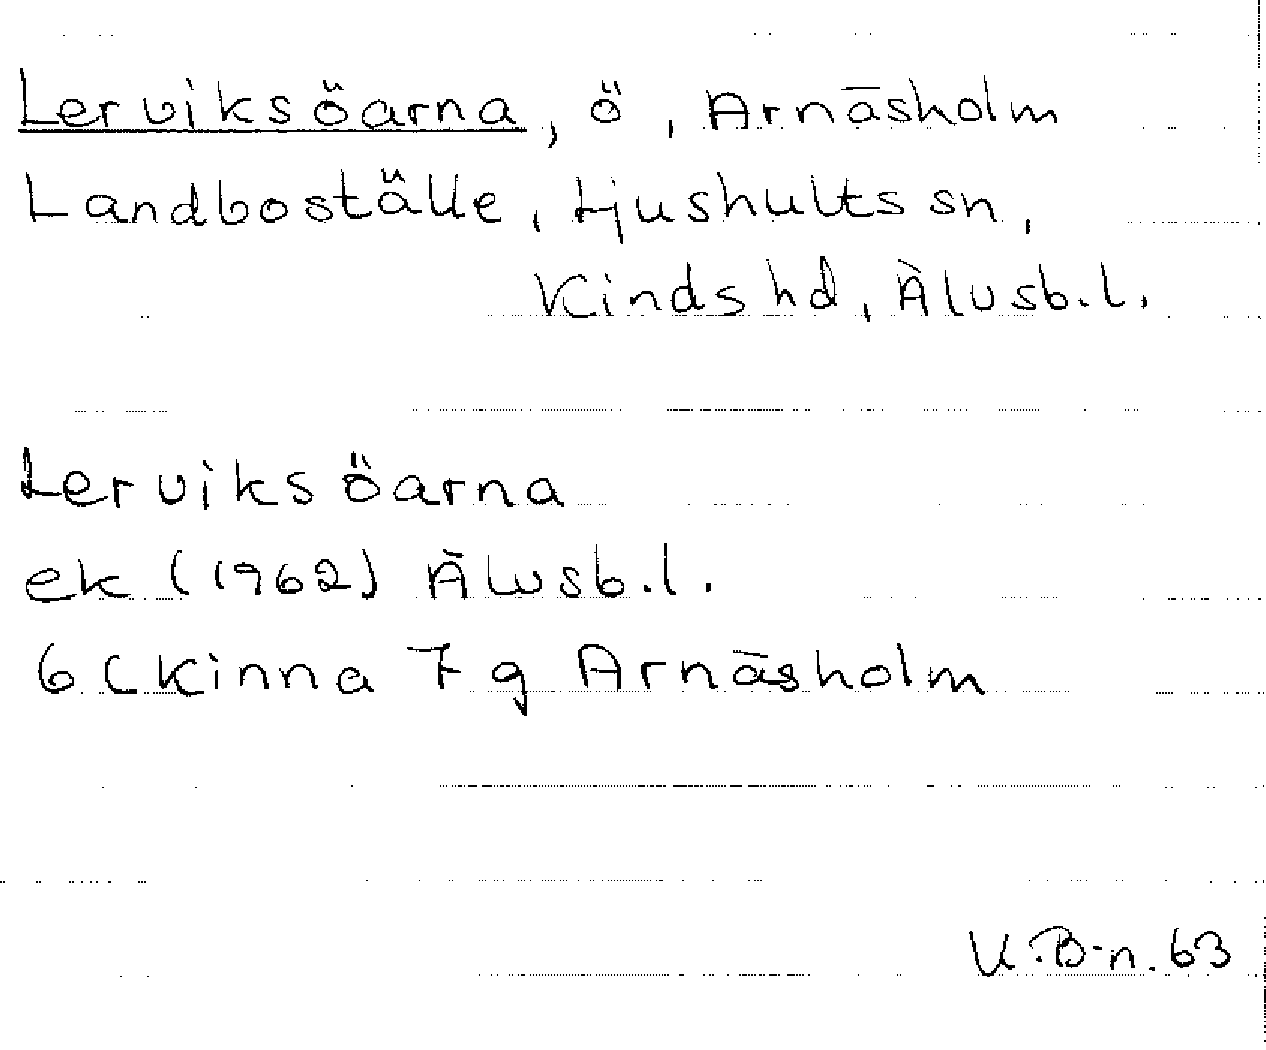 Lerviksöarna, ö, Arnäsholm
Landboställe, Ljushults sn,
Kinds hd, Älvsb.l.
Lerviksöarna
ek (1962) Älvsb.l.
6 C Kinna 7 g Arnäsholm
K.B-n. 63